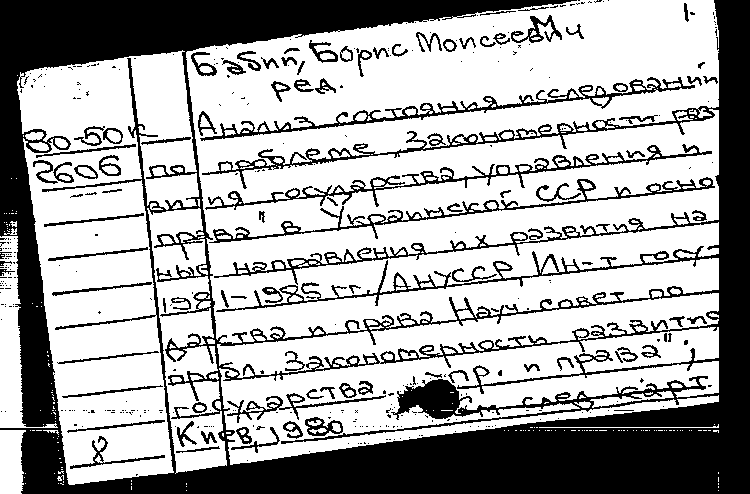 1.
Бабий, Борис Моисеевич
ред.
80-50к Анализ состояния исследований
2606 по проблеме „Закономерности раз-
вития государства, управления и
права" в Украинской ССР и основ
ные направления их развития на
1981-1985 гг./АНУССР, Ин-т госу-
дарства и права Науч. совет по
пробл. „Закономерности развития
государства. упр. и права";
Киев, 1980 См след карт
8